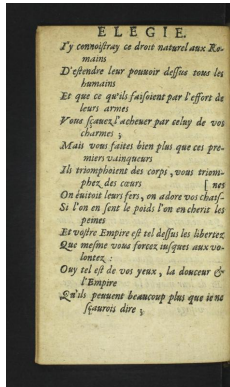 ELEGIE.
I'y connoistray ce droit naturel aux Ro-
mains
D'estendre leur pouuoir dessus tous les
humains
Et que ce qu'ils faisoient par l'effort de
leurs armes
Vous sçauez l'acheuer par celuy de vos
charmes ;
Mais vous faites bien plus que ces pre-
miers vainqueurs
Ils triomphoient des corps, vous triom-
phez des cœurs [nes
On éuitoit leurs fers, on adore vos chais-
Si l'on en sent le poids l'on en cherit les
peines
Et vostre Empire est tel dessus les libertez
Que mesme vous forcez iusques aux vo-
lontez :
Ouy tel est de vos yeux, la douceur &
l'Empire
Qu'ils peuuent beaucoup plus que ie no
sçaurois dire ;